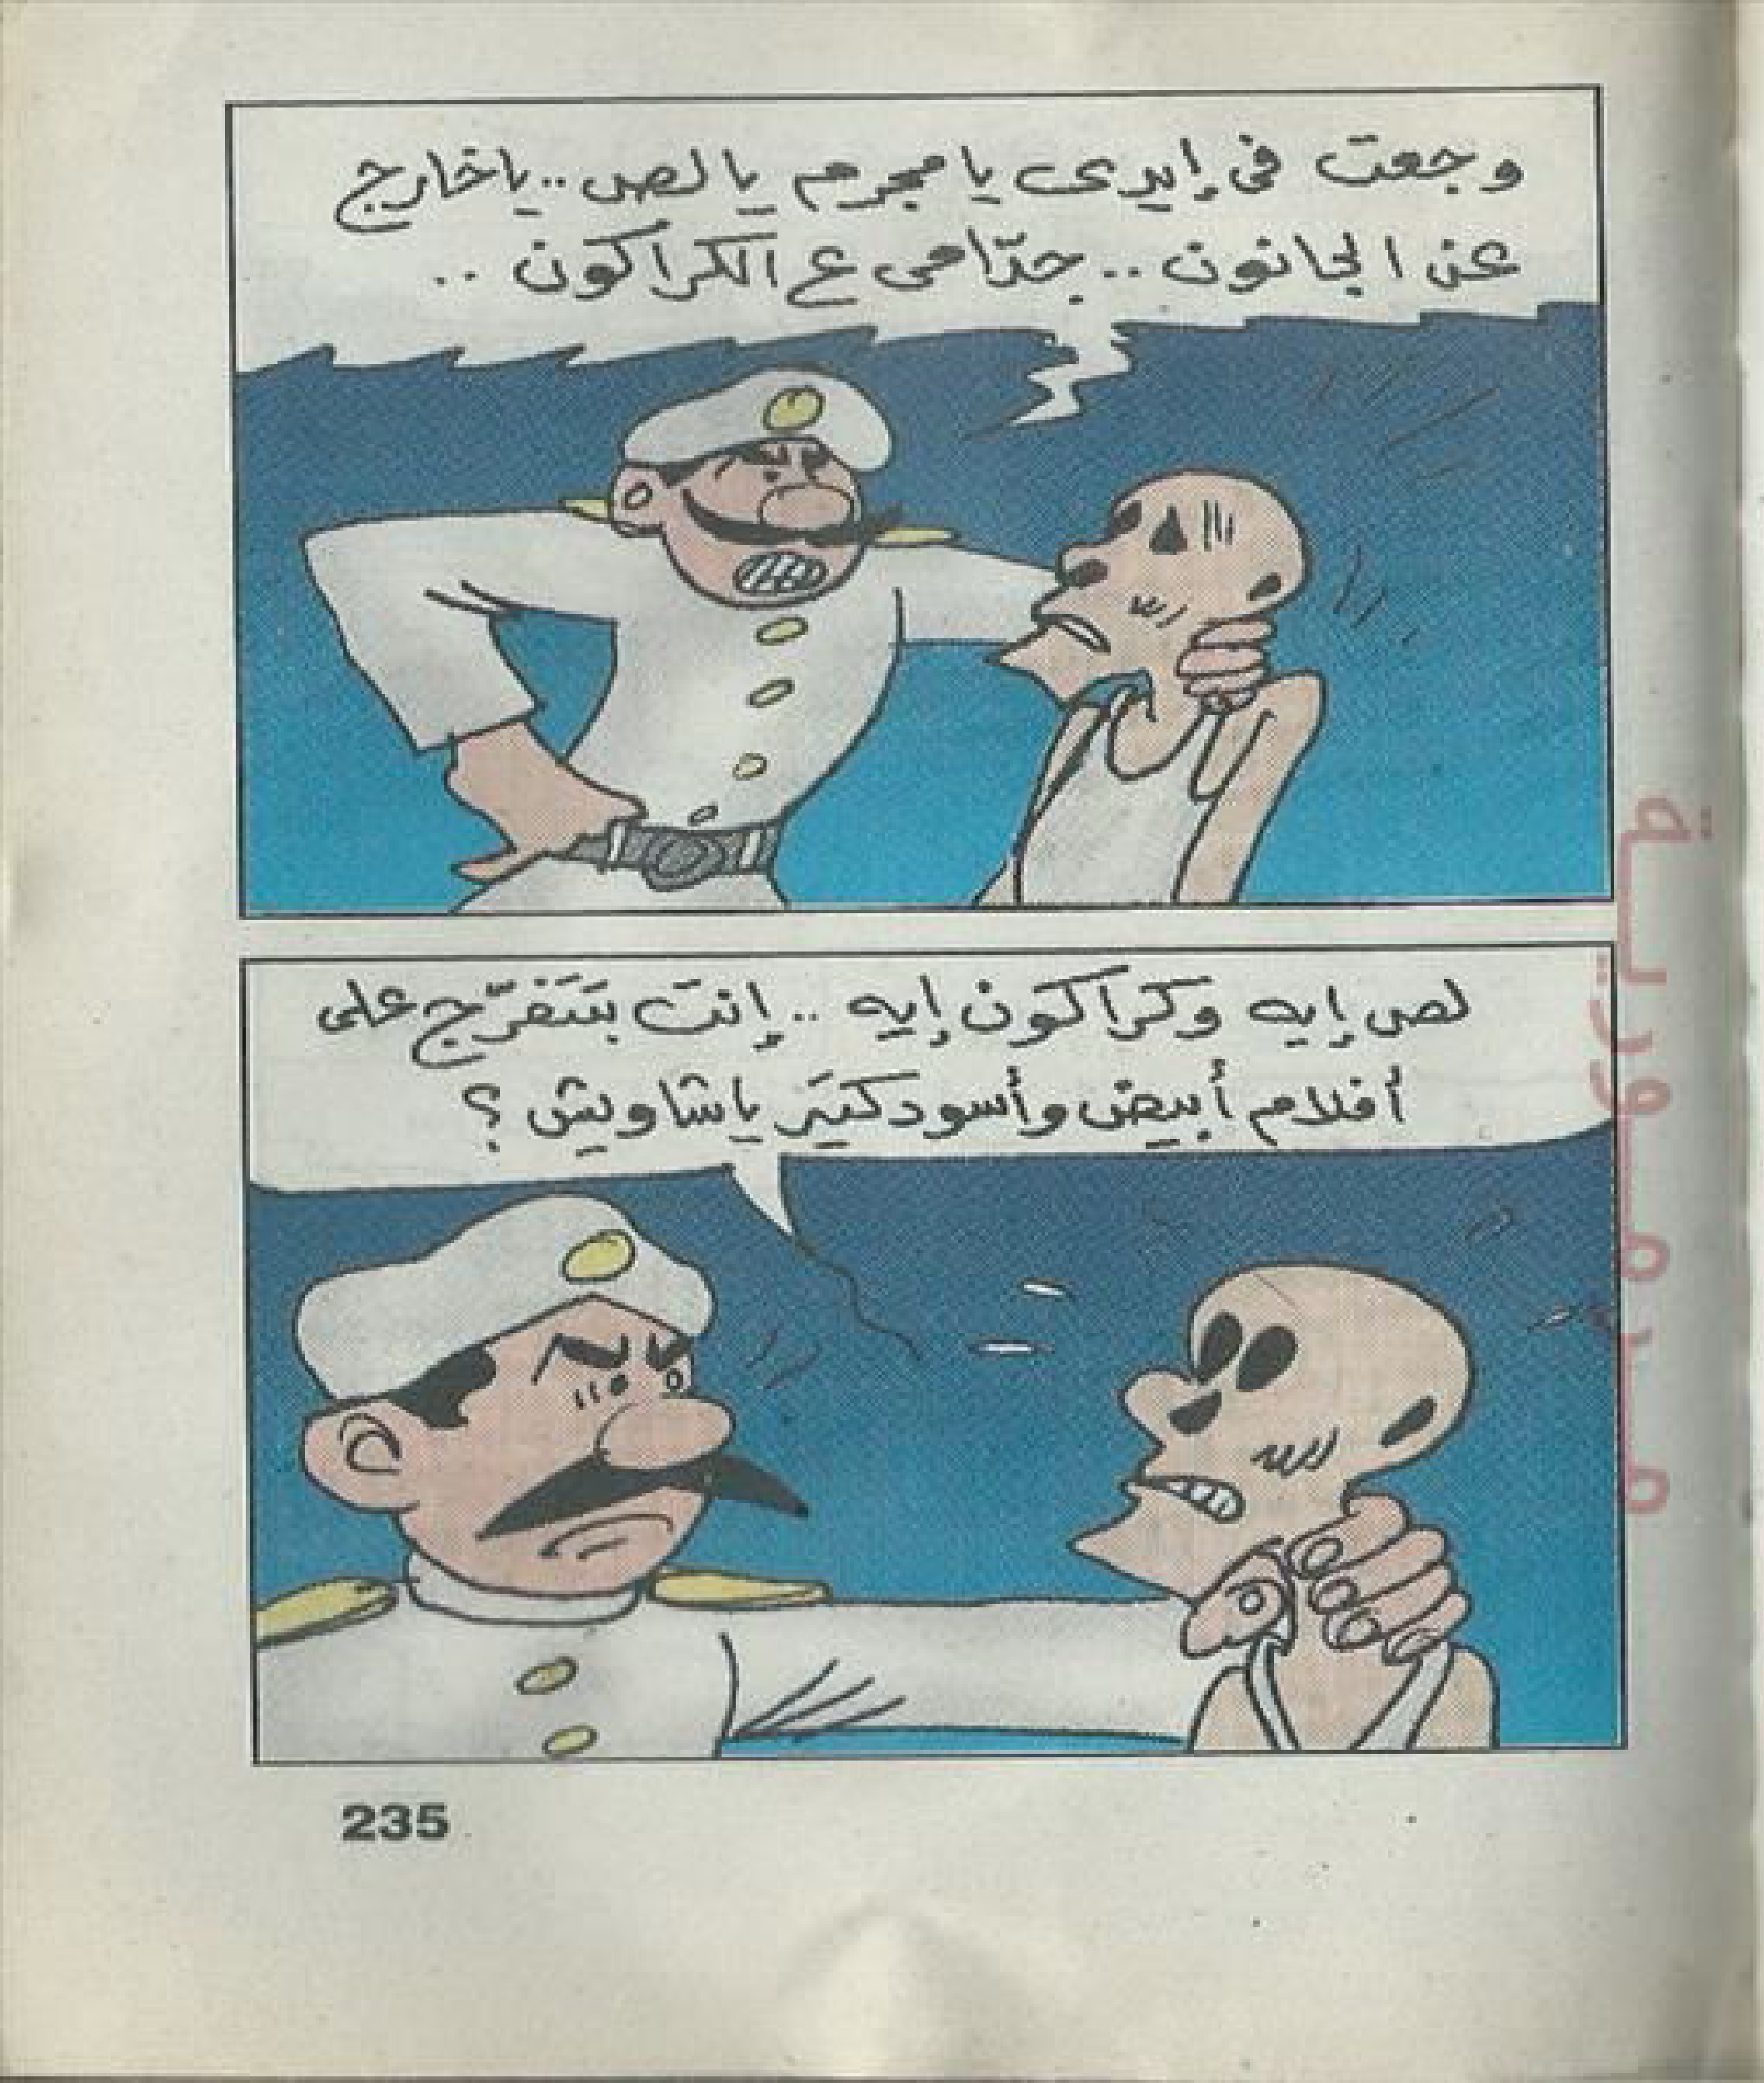 وجعت فى إيدى يا مجرم يا لص .. يا خارج
عن الجانون .. جدّامى ع الكراكون ..
لص إيه وكراكون إيه .. إنت بتتفرّج على
أفلام أبيض وأسود كتير يا شاويش ؟
235